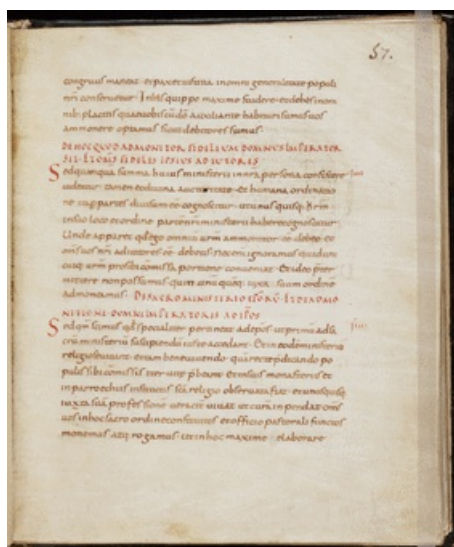 57.
congruus maneat· et pax et iustitia inomni generalitate populi
nr̄i conseruetur· Inhis quippe maxime studere· et dehis inom
nib; placitis quae uobiscū dō auxiliante habituri sumus uos
ammonere optamus sicut debitores sumus·
DE HOC QUOD ADMONITOR FIDELIUM DOMNUS IMPERATOR
SIT· ET OM̄S FIDELES IPSIUS ADIUTORES
Sed quamquā summa huius ministerii innr̄a persona consistere iii
uideatur· tamen et diuina auctoritate· et humana ordinatio
ne ita ppartes diuisum eē cognoscitur· ut unus quisq; ur̄m
insuo loco et ordine partem nr̄i ministerii habere cognoscatur·
Unde apparet qd ego omniū ur̄m ammonitor eē debeo· et
om̄s uos nr̄i adiutores eē debetis· Nec enim ignoramus quid uni
cuiq; ur̄m insibi comissa portione conueniat· Et ideo p̄ter
mittere nonpossumus· quin unūquēq; iuxta suum ordine
admoneamus· DE SACRO MINISTERIO EPORŪ· ET DE ADMO
NITIONE DOMNI IMPERATORIS AD EP̄OS
Sed qm̄ scimus qd specialiter pertineat ad epos· ut primū ad sa iiii
crū ministeriū suscipiendū iuste accedant· Et in eodē ministerio
religiose uiuant· et tam bene uiuendo· quā recte p̄dicando po
pulis sibi comissis iter uite p̄beant· Et ut insuis monasteriis et
in parrochiis
iuxta suā professione ueraciter uiuat· et curā inpendat· om̄s
uos inhoc sacro ordine constitutos· et officio pastorali functos
monemus atq; rogamus· ut inhoc maxime elaborare